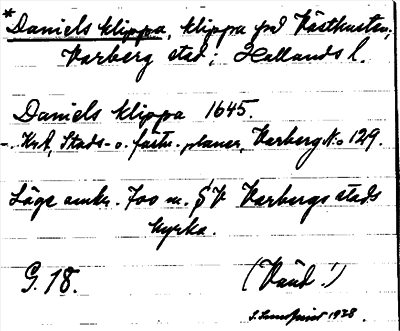 *Daniels klippa, klippa på Västkusten,
Varberg stad; Hallands l.
Daniels klippa 1645.
- KrA, Stads- o. fästn. planer, Varberg No 129.
Läge omkr. 700 m. SV Varbergs stads
kyrka.
G. 18. (Känd!)
S. Lundqvist 1928.